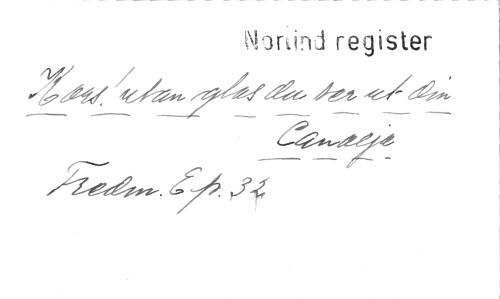 Norlind register
Kors! utan glas du ser ut din
Canalje
Fredm. Ep. 32